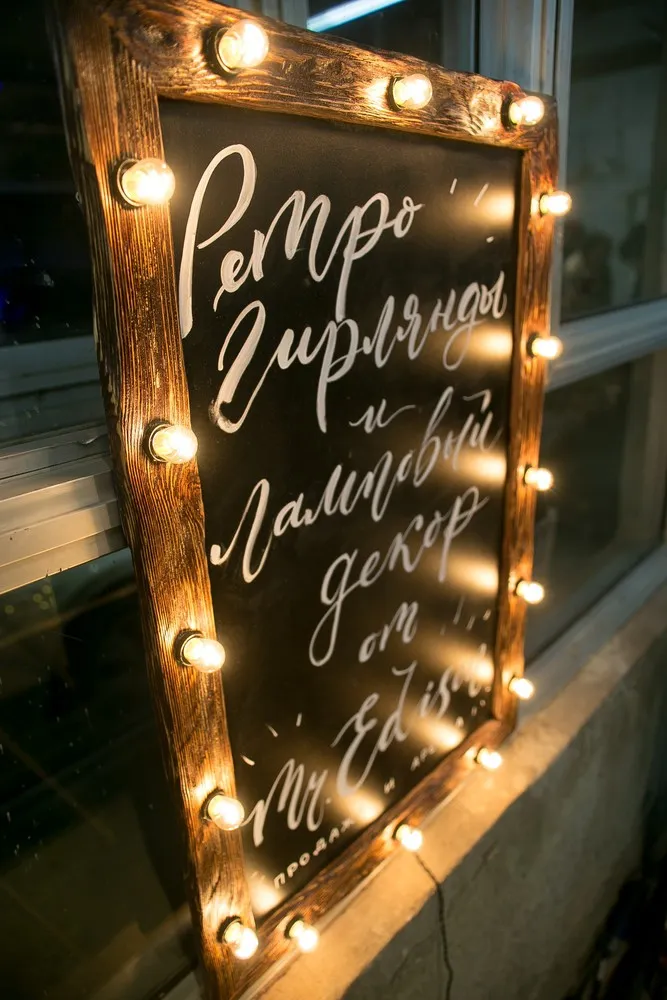 Ретро
Гирлянды
и
Ламповый
декор
от
Mr. Edison
продажа и